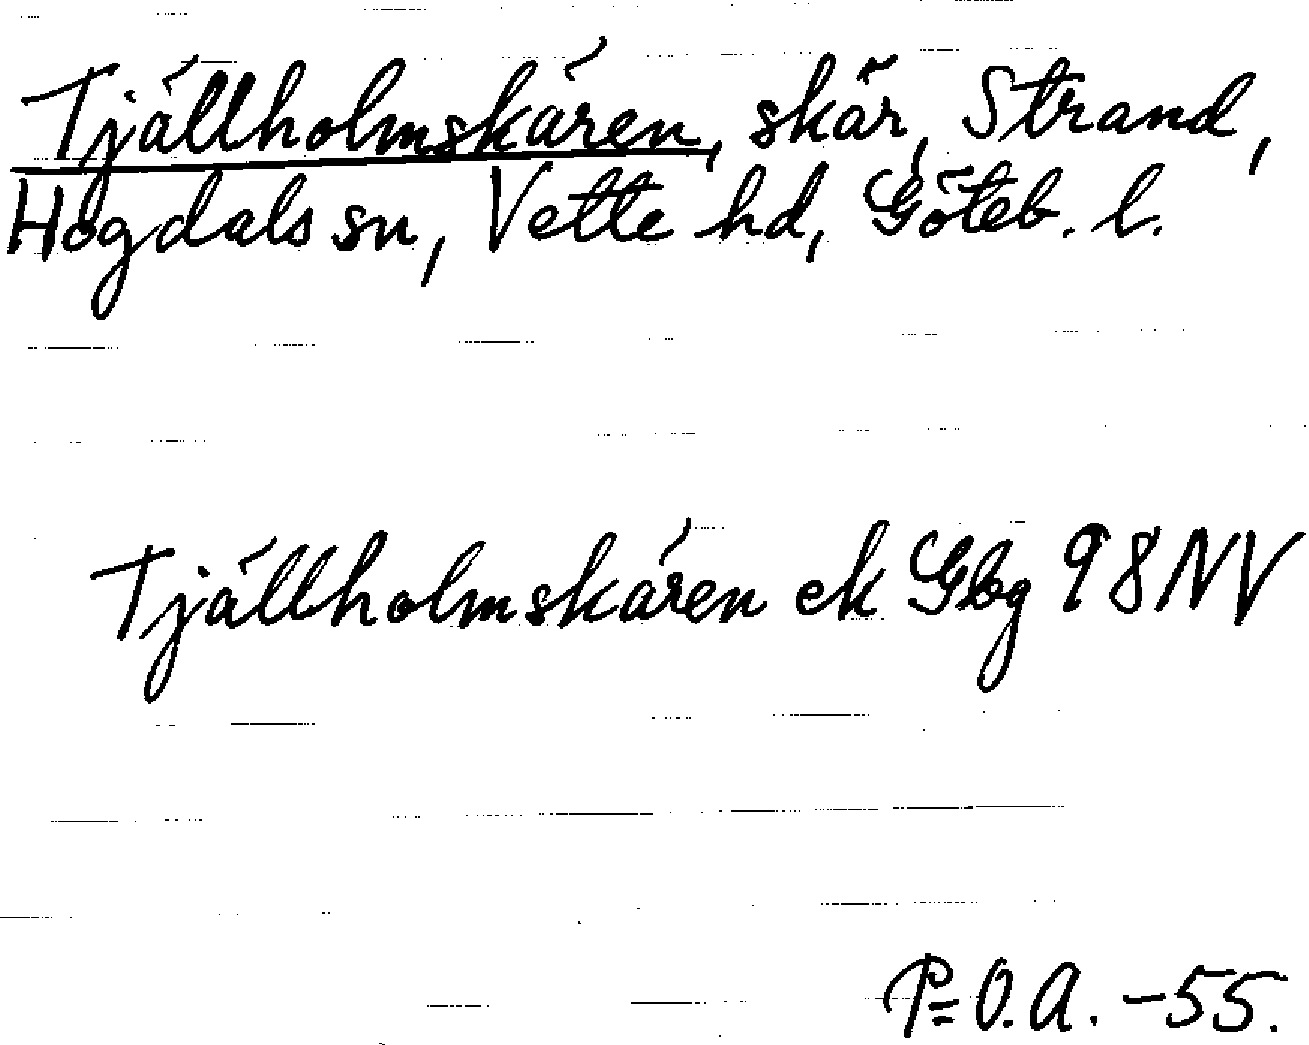 Tjällholmskären, skär, Strand,
Hogdals sn, Vette hd, Göteb. l.
Tjällholmskären ek Gbg 98 NV
P=O.A. -55.